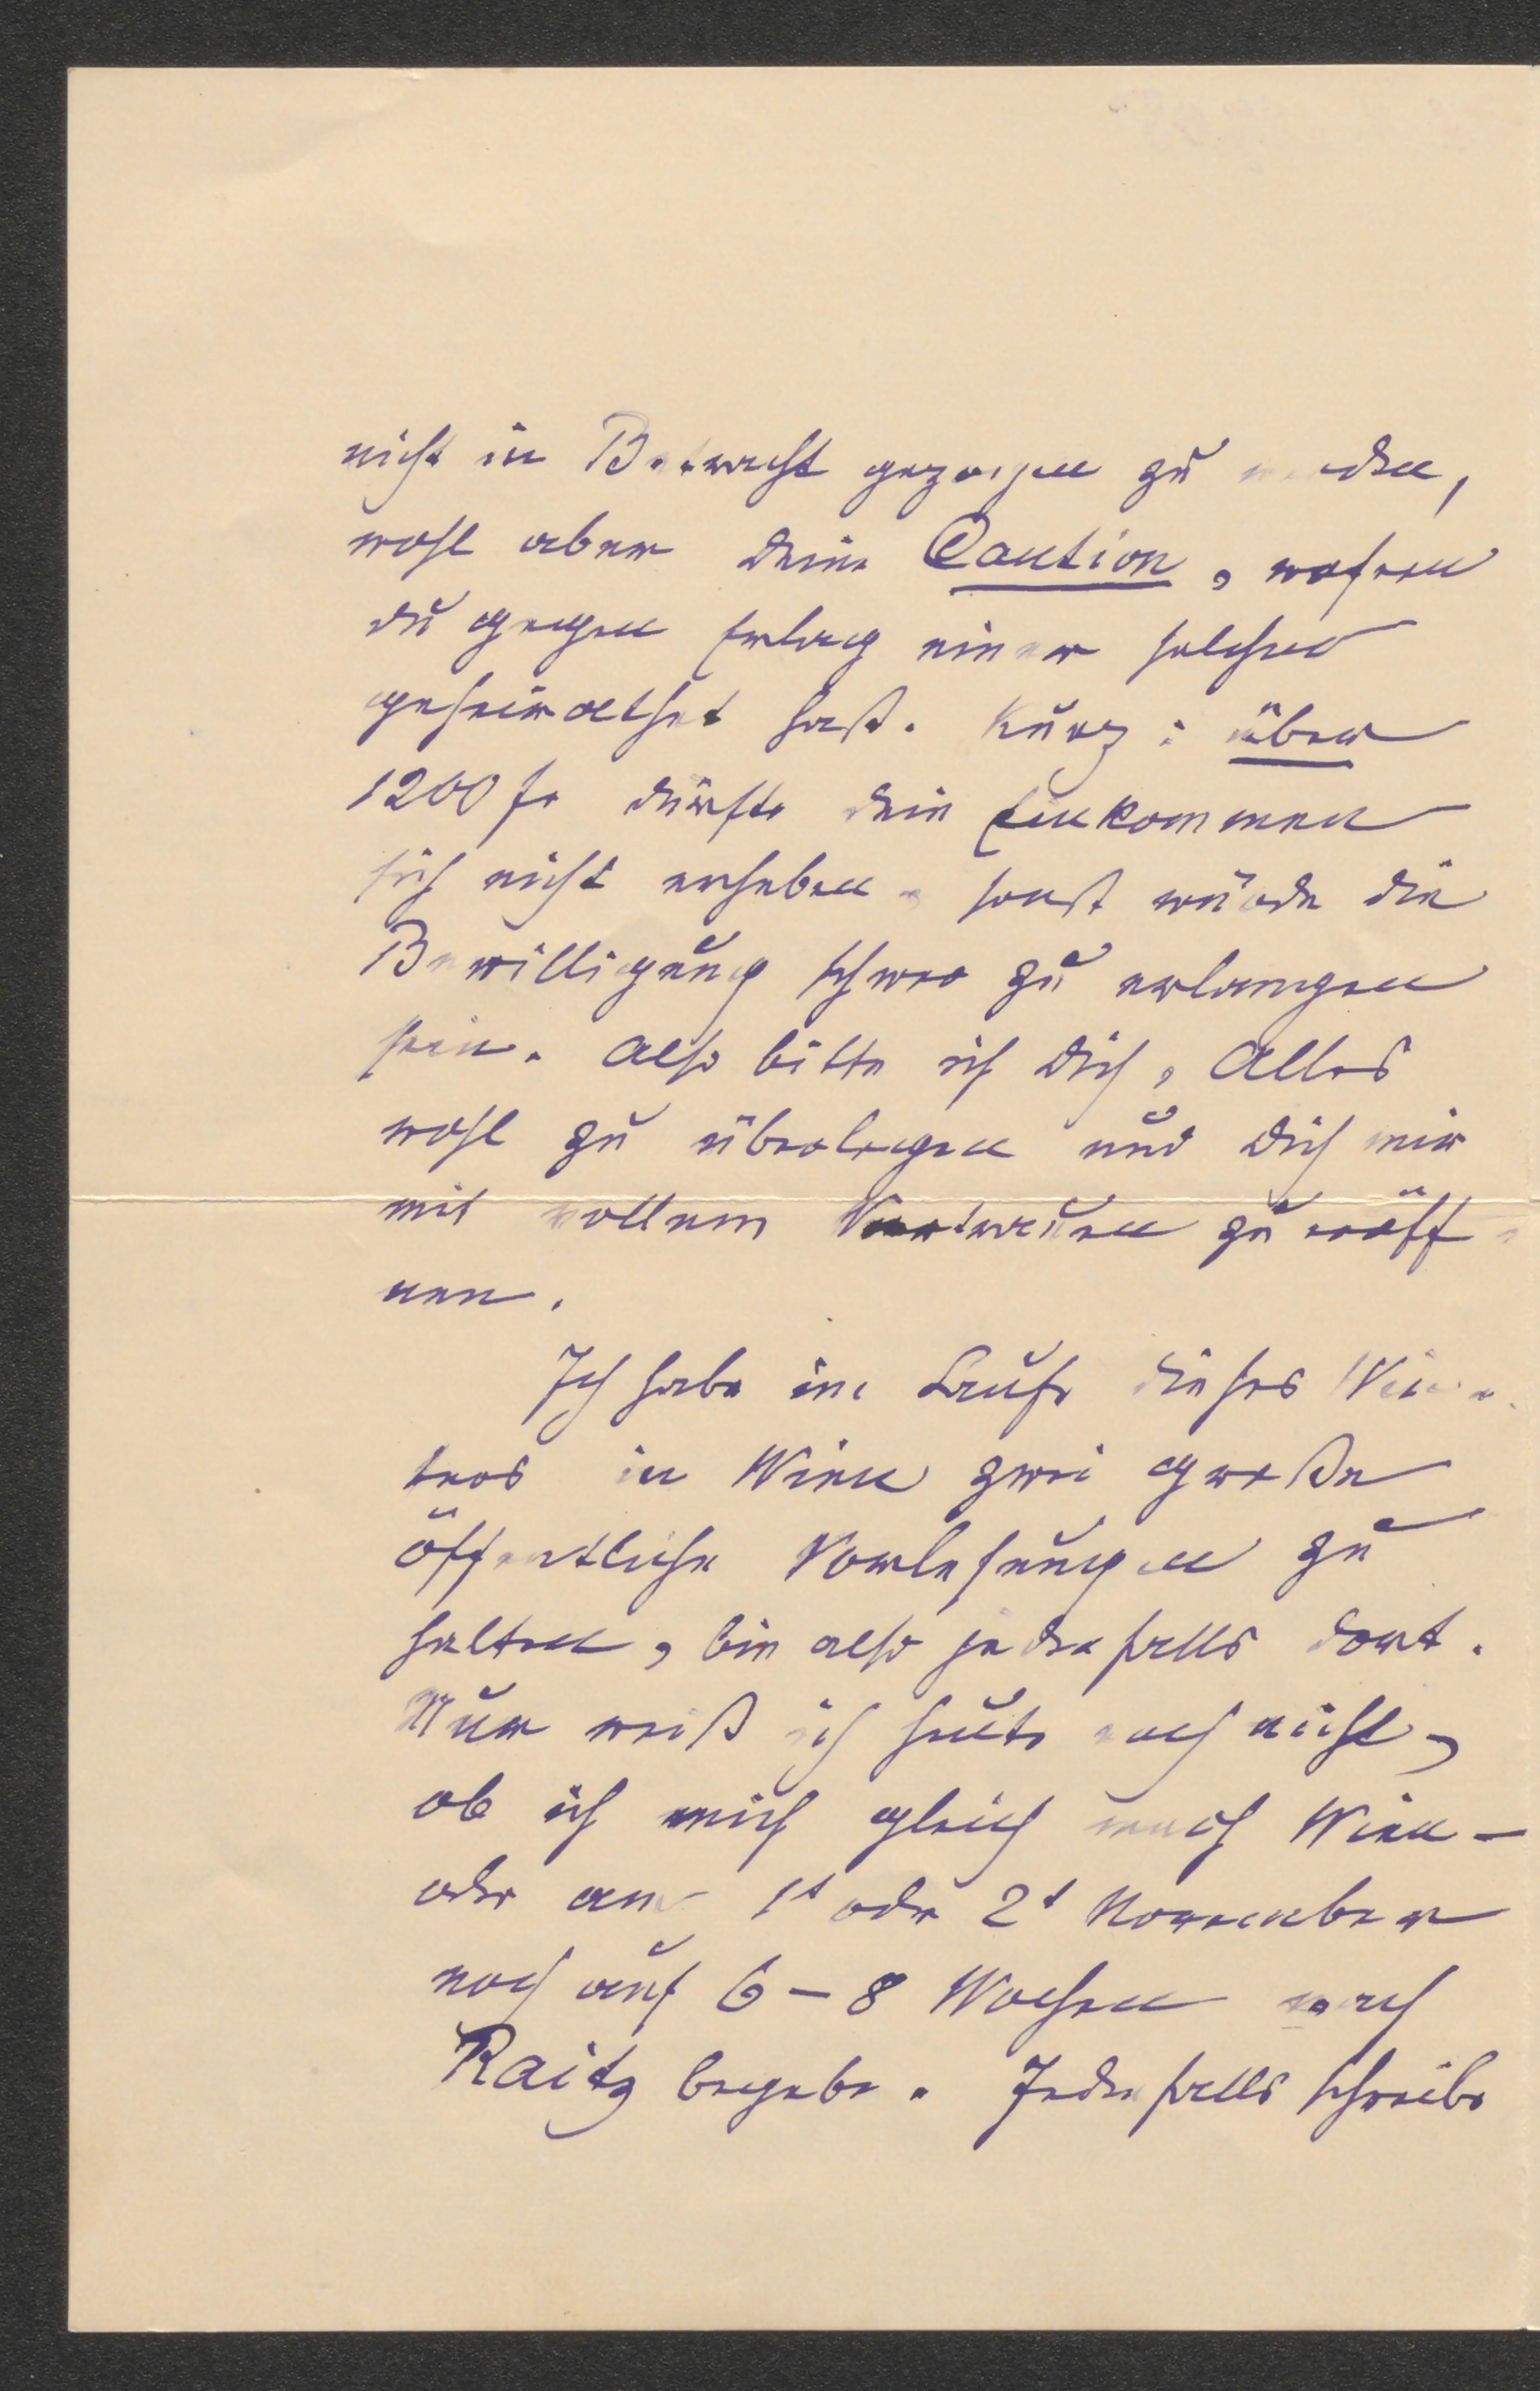 nicht in Betracht gezogen zu werden,
wohl aber deine Caution, wofern
du gegen Erlag einer solchen
geheirathet hast. Kurz: über
1200 fr dürfte dein Einkommen
sich nicht erheben, sonst würde die
Bewilligung schwer zu erlangen
sein. Also bitte ich dich, Alles
wohl zu überlegen und dich mir
mit vollem Vertrauen zu eröff-
nen.
Ich habe im Laufe dieses Win-
ters in Wien zwei große
öffentliche Vorlesungen zu
halten, bin also jedenfalls dort.
Nur weiß ich heute noch nicht,
ob ich mich gleich nach Wien –
oder am 1t oder 2t November
noch auf 6–8 Wochen nach
Raitz begebe. Jedenfalls schreibe